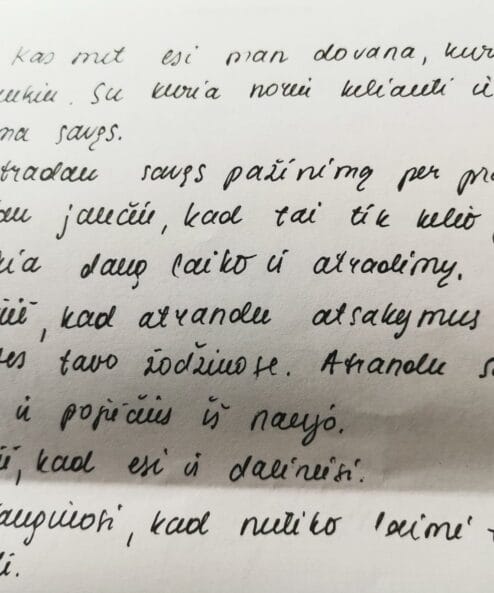 Kas mit esi man dovana, kur
Su kuria noriu keliauti ir
savęs.
tradau savęs pažinimą per pr
jaučiu, kad tai tik kelio
daug laiko ir atradimų.
, kad atrandu atsakymus
tavo žodžiuose. Atrandu s
ir pojūčius iš naujo.
, kad esi ir daliniesi.
, kad nutiko laimė